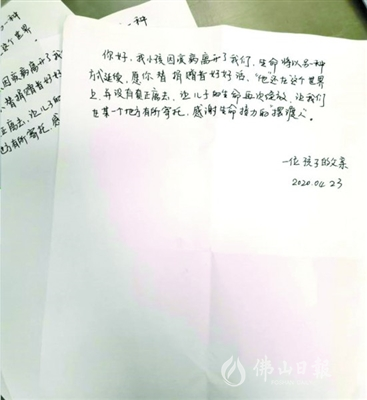 一种
这个世界
因疾病离开了我
替捐赠者好好
正离去,让儿子
方有所寄托,感
你好,我小孩因疾病离开了我们,生命将以另一种
方式延续,愿你替捐赠者好好活,“他”还在这个世界
上,并没有真正离去,让儿子的生命再次绽放,让我们
在某一个地方有所寄托,感谢生命接力的“摆渡人”。
一位孩子的父亲
2020.04.23
佛山日报